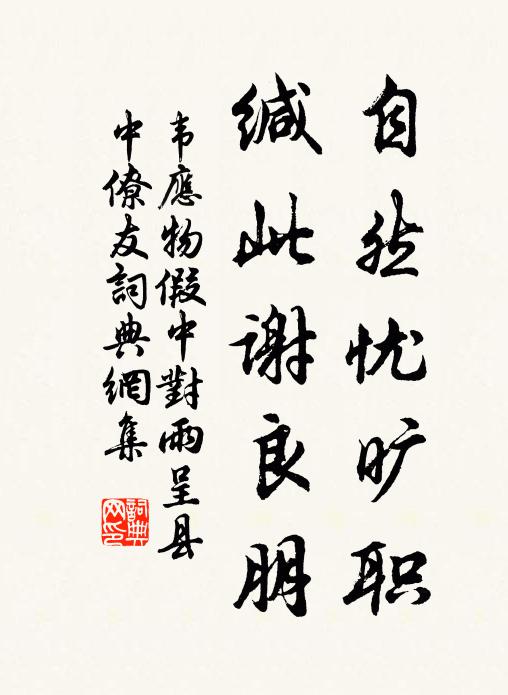 自然忧旷职
缄此谢良朋
韦應物假中對雨呈县
中僚友詞典網集
詞典网印